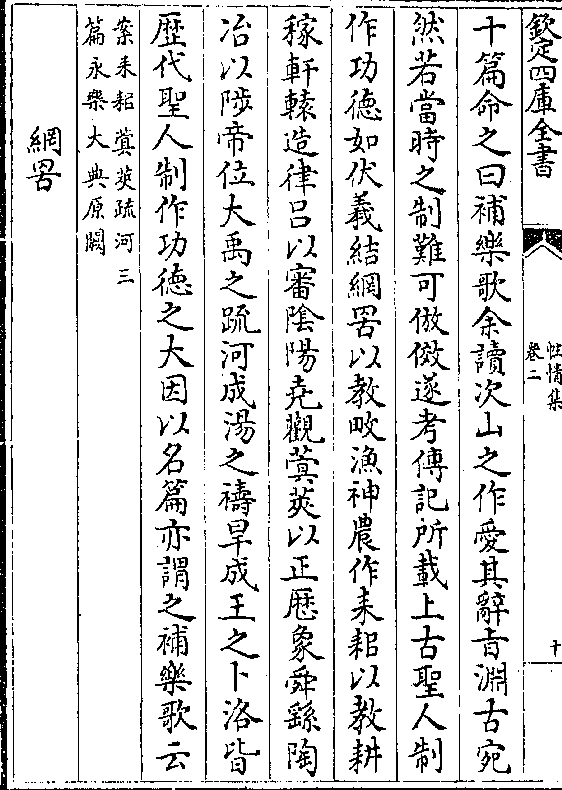 欽定四庫全書
性情集
卷二
十
十篇命之曰補樂歌余讀次山之作愛其辭古淵古宛
然若當時之制難可倣傚遂考傳記所載上古聖人制
作功德如伏羲結網罟以教畋漁神農作耒耜以教耕
稼軒轅造律呂以審陰陽堯觀蓂莢以正厯象舜繇陶
冶以陟帝位大禹之䟽河成湯之禱旱成王之卜洛皆
歴代聖人制作功德之大因以名篇亦謂之補樂歌云
案耒耜蓂莢疏河三
篇永樂大典原闕
網罟